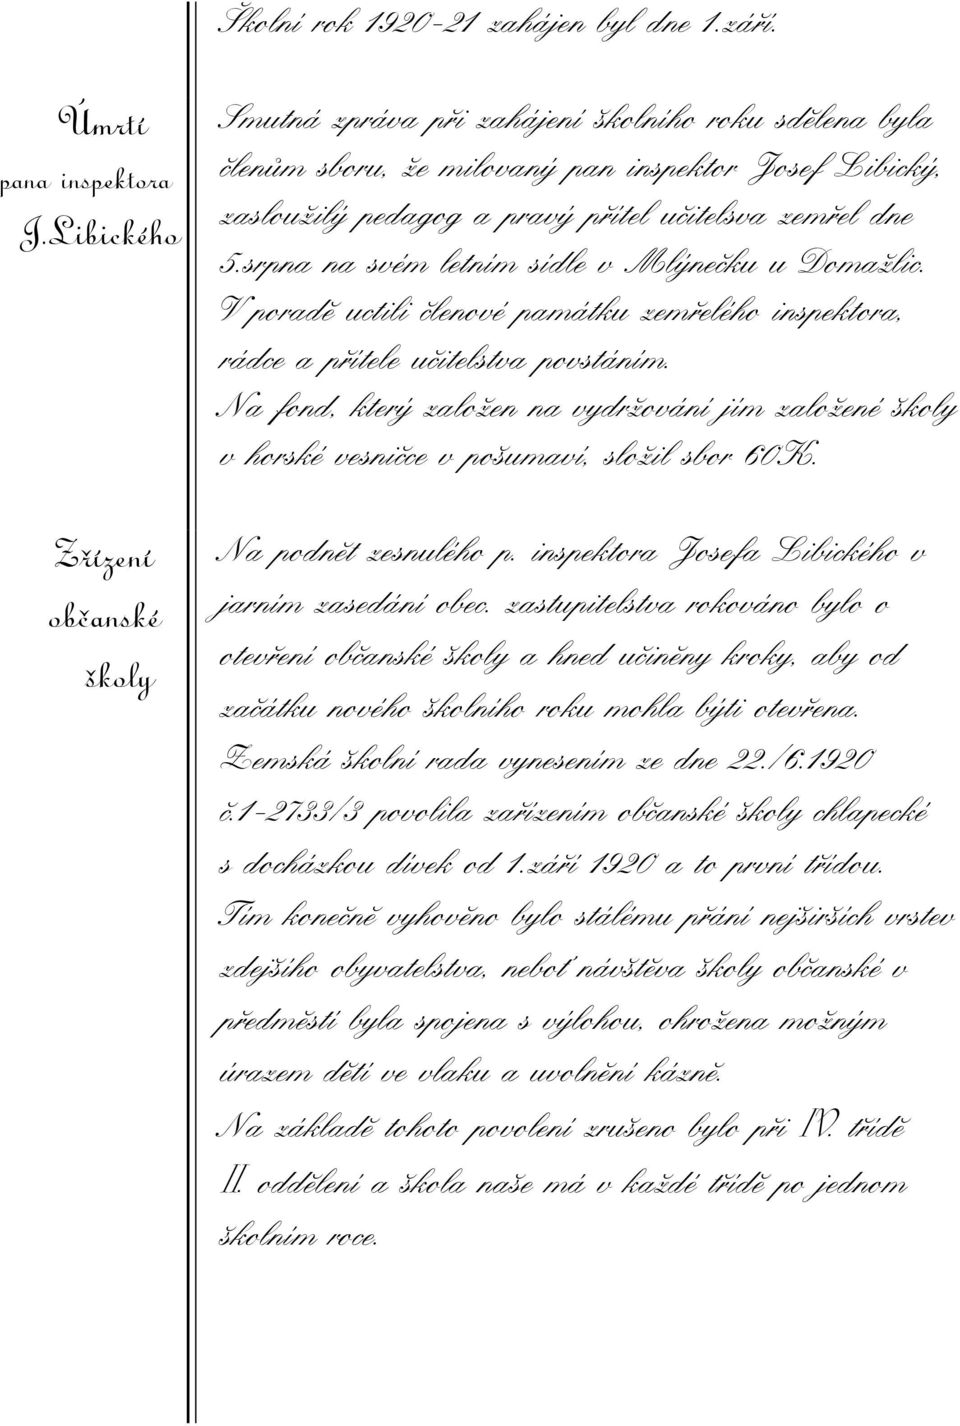 Školní rok 1920-21 zahájen byl dne 1.září.
Úmrtí
pana inspektora
J.Libického
Smutná zpráva při zahájení školního roku sdělena byla
členům sboru, že milovaný pan inspektor Josef Libický,
zasloužilý pedagog a pravý přítel učitelsva zemřel dne
5.srpna na svém letním sídle v Mlýnečku u Domažlic.
V poradě uctili členové památku zemřelého inspektora,
rádce a přítele učitelstva povstáním.
Na fond, který založen na vydržování jím založené školy
v horské vesničce v pošumaví, složil sbor 60K.
Zřízení
občanské
školy
Na podnět zesnulého p. inspektora Josefa Libického v
jarním zasedání obec. zastupitelstva rokováno bylo o
otevření občanské školy a hned učiněny kroky, aby od
začátku nového školního roku mohla býti otevřena.
Zemská školní rada vynesením ze dne 22./6.1920
č.1-2733/3 povolila zařízením občanské školy chlapecké
s docházkou dívek od 1.září 1920 a to první třídou.
Tím konečně vyhověno bylo stálému přání nejširších vrstev
zdejšího obyvatelstva, neboť návštěva školy občanské v
předměstí byla spojena s výlohou, ohrožena možným
úrazem dětí ve vlaku a uvolnění kázně.
Na základě tohoto povolení zrušeno bylo při IV. třídě
II. oddělení a škola naše má v každé třídě po jednom
školním roce.